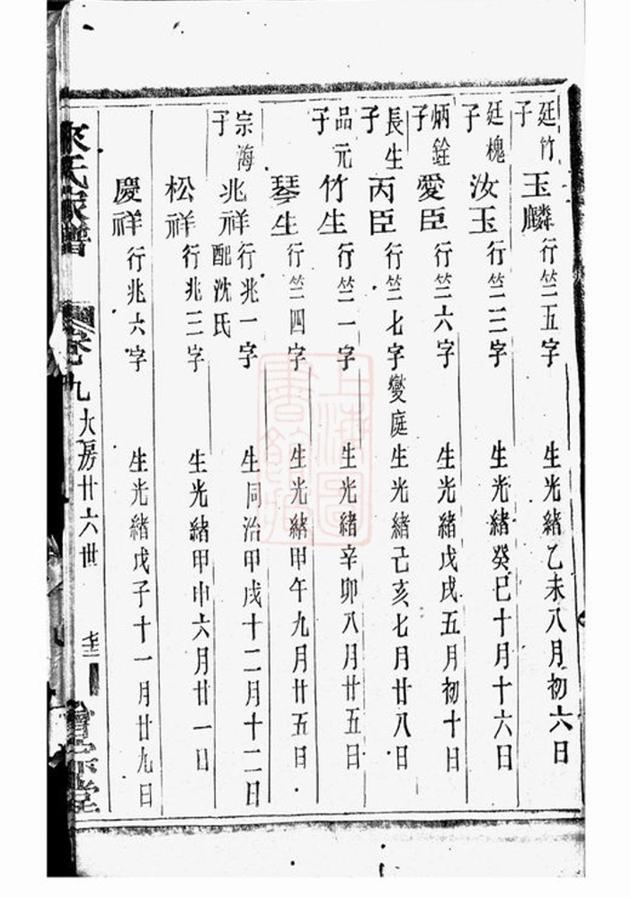 廷竹子 玉麟 行竺五字 生光緒乙未八月初六日
廷槐子 汝玉 行竺三字 生光緒癸巳十月十六日
炳銓子 愛臣 行竺六字 生光緒戊戌五月初十日
長生子 丙臣 行竺七字燮庭 生光緒己亥七月廿八日
品元子 竹生 行竺一字 生光緒辛卯八月廿五日
琴生 行竺四字 生光緒甲午九月廿五日
宗海子 兆祥 行兆一字 生同治甲戌十二月十二日
配沈氏
松祥 行兆三字 生光緒甲申六月廿一日
慶祥 行兆六字 生光緒戊子十一月廿九日
氏家譜 卷 九大房廿六世
上海圖書館藏